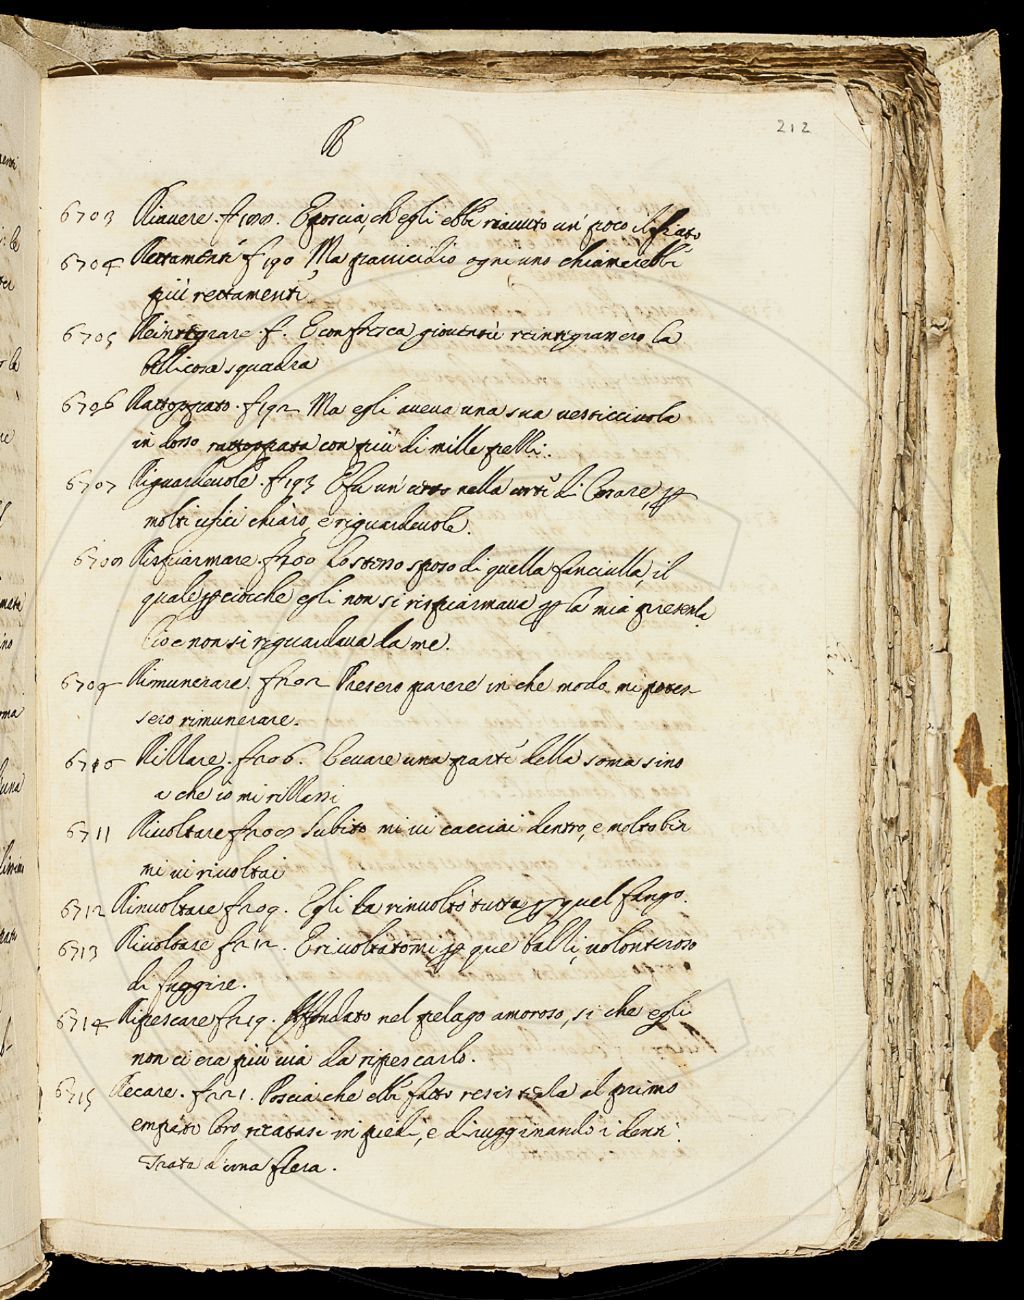 212
R
6703 Riavere. f188. E poscia, ch'egli ebbe riavuto un' poco il fiato
6704 Rettamente f190 Ma parricidio ogni uno chiamerebbe
più rettamente
6705 Reintegrare. f. E con fresca gioventù reintegravano la
bellicosa squadra
6706 Rattoppato. f192 Ma egli aveva una sua vesticciuola
in dosso rattoppata con più di mille pelli.
6707 Riguardevole. f193 E fu un' nella corte di Cesare, p
molti ufici chiaro, e riguardevole.
6708 Risparmare. f200 Lo stesso sposo di quella fanciulla, il
quale p ciocche egli non si risparmava p la mia presenza
cioe non si riguardava da me.
6709 Rimunerare. f202 Presero parere in che modo mi potes
sero rimunerare.
6710 Rillare. f206. Levare una parte della soma sino
a che io mi rillassi
6711 Rivoltare f208 Subito mi vi cacciai dentro, e molto ben
mi vi rivoltai
6712 Rinvoltare f209. Egli la rinvoltò tutta p quel fango.
6713 Rivoltare f212. E rivoltatomi p que balli, volonteroso
di fuggire.
6714 Ripescare f219. Affondato nel pelago amoroso, si che egli
non ci era più via da ripescarlo.
6715 Recare. f221. Poscia che ebbe fatto resistenza al primo
empito loro recatasi in piedi, e dirugginando i denti.
Trata d'una fiera.